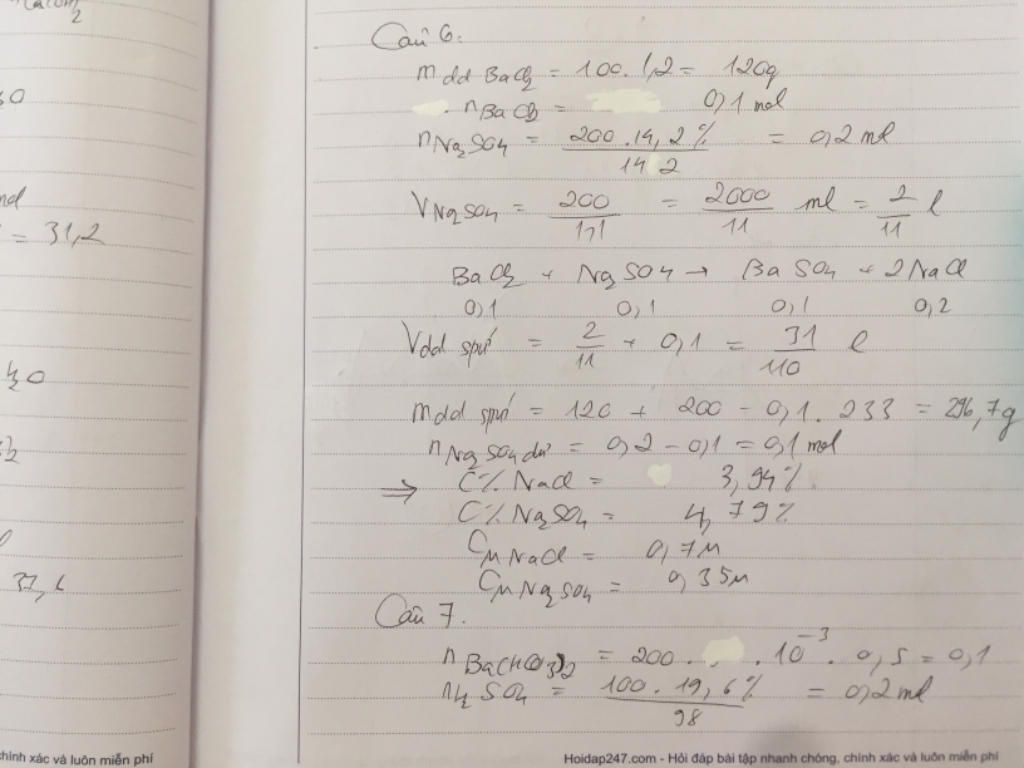 Ca(OH)2
30
mol
= 31,2
H2O
2
37,6
chính xác và luôn miễn phí
Câu 6:
m dd BaCl2 = 100. 1,2 = 120g
nBaCl2 = 0,1 mol
nNa2SO4 = 200.14,2% / 142 = 0,2 ml
VNa2SO4 = 200 / 1,1 = 2000 / 11 ml = 2 / 11 l
BaCl2 + Na2SO4 → BaSO4 + 2NaCl
0,1 0,1 0,1 0,2
Vdd spứ = 2 / 11 + 0,1 = 31 / 110 l
mdd spứ = 120 + 200 - 0,1. 233 = 296,7g
nNa2SO4 dư = 0,2 - 0,1 = 0,1 mol
⇒ C% NaCl = 3,94%
C% Na2SO4 = 4,79%
CM NaCl = 0,7M
CM Na2SO4 = 0,35M
Câu 7.
nBa(HCO3)2 = 200. .10^-3. 0,5 = 0,1
nH2SO4 = 100. 19,6% / 98 = 0,2 ml
Hoidap247.com - Hỏi đáp bài tập nhanh chóng, chính xác và luôn miễn phí